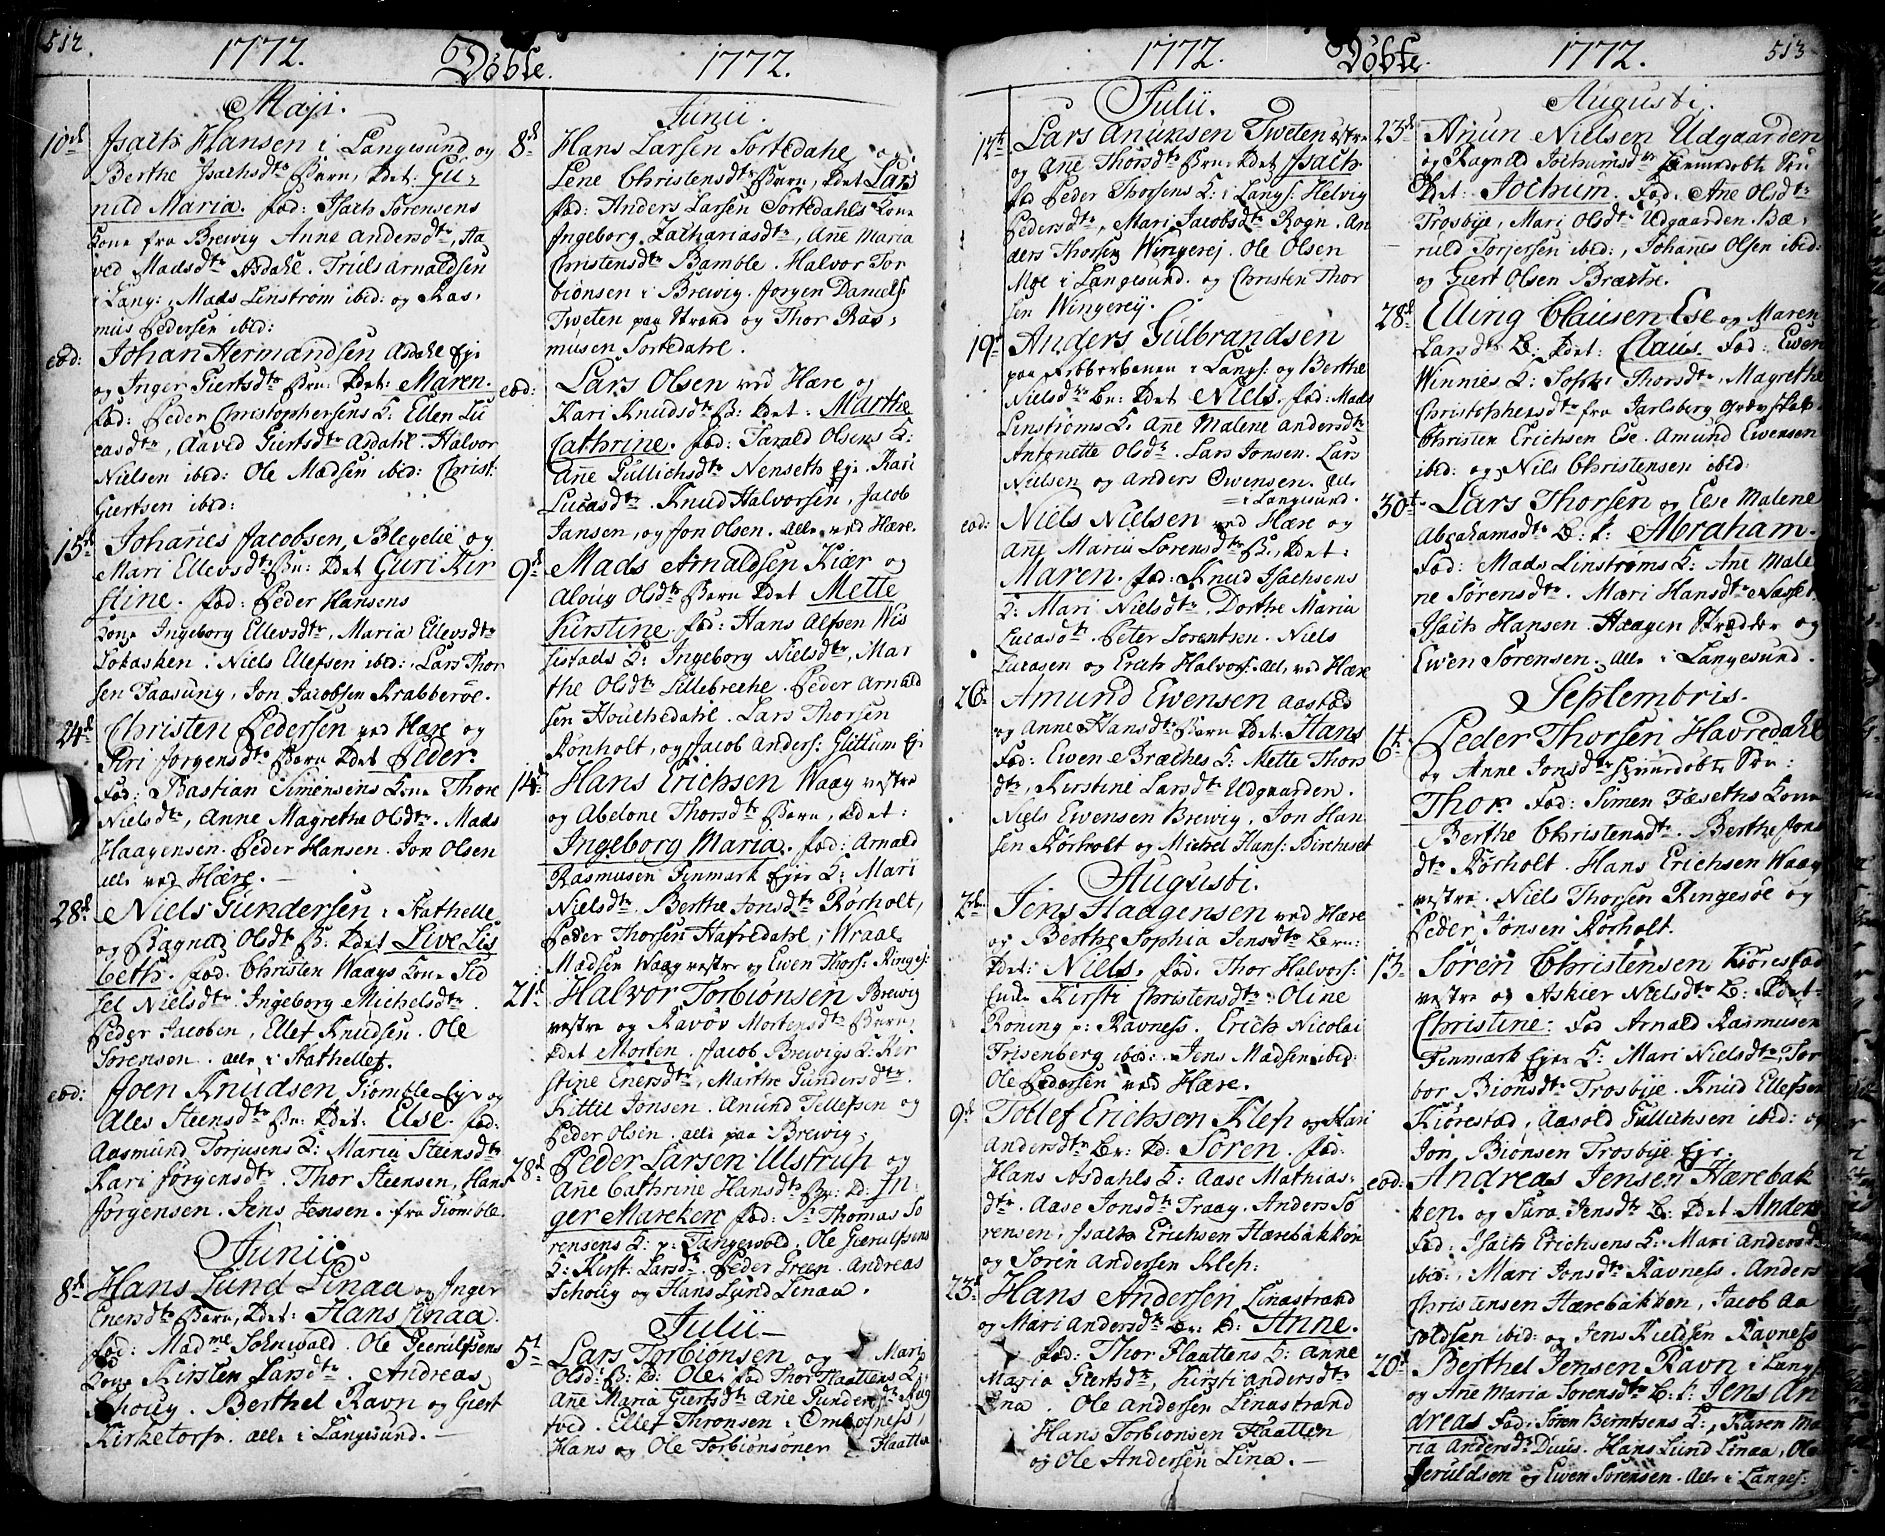 512.
1772. Döbte. 1772.
Maji.
10de Isach Hansen i Langesund og
Berthe Isachsdtr Barn, Kdet: Gu,
nild Maria. fad: Isach Sörensens
Kone fra Brewig Anne Andersdtr, Aa
ved Madsdtr Asdahl. Truls Arnaldsen
i Lang:, Mads Linström ibid: og Ras,
mus Pedersen ibid:
eod: Johan Hermandsen Asdahl Eje
og Inger Giertsdtr Bn: Kdet: Maren.
fad: Peder Christophersens K: Ellen Lu
casdtr, Aaved Giertsdtr Asdahl. Halvor
Nielsen ibid: Ole Madsen ibid: Christ:
Giertsen ibid:
15de Johanes Jacobsen, Blegelie og
Mari Ellevsdtr Bn: Kdet Guri Kir
stine. fad: Peder Hansens
Kone Ingeborg Ellevsdtr, Maria Ellevsdtr
Niels Ellefsen ibid:, Lars Thor
sen Taasung, Jon Jacobsen Krabberöe.
24de Christen Pedersen ved Hære og
Siri Jörgensdtr Barn Kdet Peder
Fad: Bastian Simensens Kone Thore
Nielsdtr, Anne Magrethe Olsdtr. Mads
Haagensen. Peder Hansen. Jon Olsen
alle ved Hære.
28de Niels Gundersen i Stathelle
og Ragnild Olsdtr B: Kdet Live Lis
beth. fad: Christen Waags Kone Sid
sel Nielsdtr. Ingeborg Michelsdtr.
Peder Jacobsen, Ellef Knudsen. Ole
Sörenson. alle i Stathellet.
eod: Joen Knudsen, Giömble Eje og
Ales Steensdtr Bn: Kdet: Else. fad:
Aasmund Torjusens K: Maria Steensdtr
Kari Jörgensdtr. Thor Steensen, Hans
Jörgensen. Jens Jensen. fra Giömble.
Junii
8de Hans Lund Linaa og Inger
Enersdtr Barn, Kdet: Hans Linaa.
fad: Madme Ole Gierulfsens
Kone Kirsten Larsdtr. Andreas
Schoug. Berthel Ravn og Giert
Kirketorp. alle i Langesund.
Junii.
8de Hans Larsen Sortedahl og
Lene Christensdtr Barn, Kdet Lars
fad: Anders Larsen Sortedahls Kone
Ingeborg Zachariasdtr, Ane Maria
Christensdtr Bamble. Halvor Tor
biönsen i Brewig. Jörgen Daniels:
Tweten paa Strand og Thor Ras,
musen Sortedahl.
eod: Lars Olsen ved Hære og
Kari Knudsdtr B: Kdet: Marthe
Cathrine. fad: Tarald Olsens K:
Ane Gullichsdtr Nenseth Eje. Kari
Lucasdtr. Knud Halvorsen, Jacob
Jansen, og Jon Olsen. alle ved Hære.
9de Mads Arnaldsen Kiær og
Aloug Olsdtr Barn Kdet Mette
Kirstine. fad: Hans Alfsen Wis
sestads K: Ingeborg Nielsdtr, Mar
the Olsdtr Lillebrethe. Peder Arnald
sen Houlhedahl. Lars Thorsen
Rönholt, og Jacob Anders: Glittum Eje
14de Hans Erichsen Waag vestre
og Abelone Thorsdtr Barn, Kdet:
Ingeborg Maria. fad: Arnald
Rasmusen Finmark Ejes K: Mari
Nielsdtr. Berthe Jonsdtr Rörholt,
Peder Thorsen Hafredahl, Wraal
Madsen Waag vestre og Ewen Thors: Ringes:
21de Halvor Torbiönsen Brewig
vestre og Ravöv Mortensdtr Barn,
Kdet Morten. Jacob Brewigs K: Kir
stine Enersdtr, Marthe Gundersdtr.
Kittil Jonsen. Anund Tellefsen og
Peder Olsen. alle paa Brewig.
28de Peder Larsen Ulstrup og
Ane Cathrine Hansdtr Bn: Kd: In,
ger Mareken fad: Sr Thomas Sö
rensens K: p: Tangewold. Ole Gierulfsens
K: Kirst: Larsdtr. Peder Green. Andreas
Schoug og Hans Lund Linaa.
Julii
5te Lars Torbiönsen og Mari
Olsd: B: Kd: Ole. fad Thor Flaattens K:
Ane Maria Giertsdtr Ane Gundersdtr Rug
tved. Ellef Thronsen i Ombofness,
Hans og Ole Torbiönsöner Flaatten
1772. Döbte. 1772. 513
Julii.
12te Lars Anunsen Tweten vstre
og Ane Thorsdtr Brn: Kdet Isach.
fad Peder Thorsens K: i Langs: Helvig
Pedersdtr, Mari Jacobsdtr Rogn. An
ders Thorsen Wingerej. Ole Olsen
Moe i Langesund. og Christen Thor
sen Wingereij.
19de Anders Gulbrandsen
paa i Langs: og Berthe
Nielsdtr Bn: Kdet Niels. fad: Mads
Linströms K: Ane Malene Andersdtr
Antonette Olsdtr. Lars Jonsen. Lars
Nielsen og Anders Ewensen. alle
i Langesund.
eod: Niels Nielsen ved Hære og
Ane Maria Sörensdtr B:, Kdet:
Maren. fad: Knud Isachsens
K: Mari Nielsdtr, Dorthe Maria
Lucasdtr. Peter Lorentsen. Niels
Lucasen og Erich Halvors: all: ved Hære
26de Amund Ewensen Aastad
og Anne Hansdtr Barn Kdet: Hans
Fad: Ewen Bræthes K: Mette Thors
dtr, Kirstine Larsdtr Udgaarden.
Niels Ewensen Brewig, Jon Han
sen Rörholt og Michel Hans: Kircheset
Augusti.
2de Jens Haagensen ved Hære
og Berthe Sophia Jensdtr Brn:
Kdet: Niels. fad: Thor Halvors:
Enke Kirsti Christensdtr. Oline
Roning p: Ravness. Erich Nicolai
Frisenberg ibid:. Jens Madsen ibid:
Ole Pedersen ved Hære.
9de Tollef Erichsen Klep og Kari
Andersdtr Br: Kd: Sören. fad:
Hans Asdahls K: Aase Mathias,
dtr. Aase Jonsdtr Traag. Anders Sö
rensen, Isach Erichsen Hærebakken
og Sören Andersen Klep:
23de Hans Andersen Linastrand
og Mari Andersdtr Br: Kd: Anne.
fad: Thor Flaattens K: Anne
Maria Giertsdtr, Kirsti Andersdtr
Lina. Ole Andersen Linastrand
Hans Torbiönsen Flaatten
og Ole Andersen Lina.
Augusti.
23de Anun Nielsen Udgaarden
og Ragnild Jochumsdtr hiemedöbte Bn
Kdet: Jochum. Fad: Ane Olsdtr
Trosbye, Mari Olsdtr Udgaarden. Bæ,
ruld Torjersen ibid:, Johanes Olsen ibid:
og Giert Olsen Bræthe.
28de Elling Clausen Ese og Maren
Larsdtr B: Kdet: Claus. Fad: Ewen
Winnies K: Sophi Thorsdtr, Magrethe
Christophersdtr fra Jarlsberg Grevskab.
Christen Erichsen Ese. Amund Ewensen
ibid: og Nils Christensen ibid:
30te Lars Thorsen og Else Malene
Abrahamsdtr B: K: Abraham.
Fad: Mads Linströms K: Ane Male
ne Sörensdtr. Mari Hansdtr Næsset.
Isach Hansen. Haagen Skrædder og
Ewen Sörensen. alle i Langesund.
Septembris.
6te Peder Thorsen Havredahl
og Anne Jonsdtr hiemedöbte Bn:
Thor. Fad: Simen Fæseths Kone
Berthe Christensdtr. Berthe Jons
dtr Rörholt. Hans Erichsen Waag
vestre. Niels Thorsen Ringesöe og
Peder Jonsen Rörholt.
13. Sören Christensen Kiörestad
vestre og Askier Nielsdtr B: Kdet
Christine. Fad Arnald Rasmusen
Finmark Ejes K: Mari Nielsdtr, Tor
bor Biönsdtr Trosbije. Knud Ellefsen
Kiörestad, Aasold Gullichsen ibid: og
Jon Biönsen Trosbije Eje.
eod: Andreas Jensen Hærebak
ken. og Sara Jensdtr B: Kdet Anders
Fad: Isach Erichsens K: Mari Andersdtr
ibid:, Mari Jonsdtr Ravness. Anders
Christensen Hærebakken, Jacob Aa
soldsen ibid: og Jens Kieldsen Ravness
20de Berthel Jensen Ravn i Langs:
og Ane Maria Sörensdtr B: K: Jens An
dreas Fad: Sören Berntsens K:, Karen Ma
ria Andersdtr Duus. Hans Lund Linaa, Ole
Jeruldsen og Ewen Sörensen. Alle i Langes: